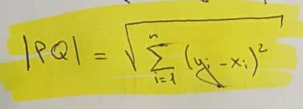 |PQ| = √ Σ_{i=1}^{n} (y_i - x_i)²